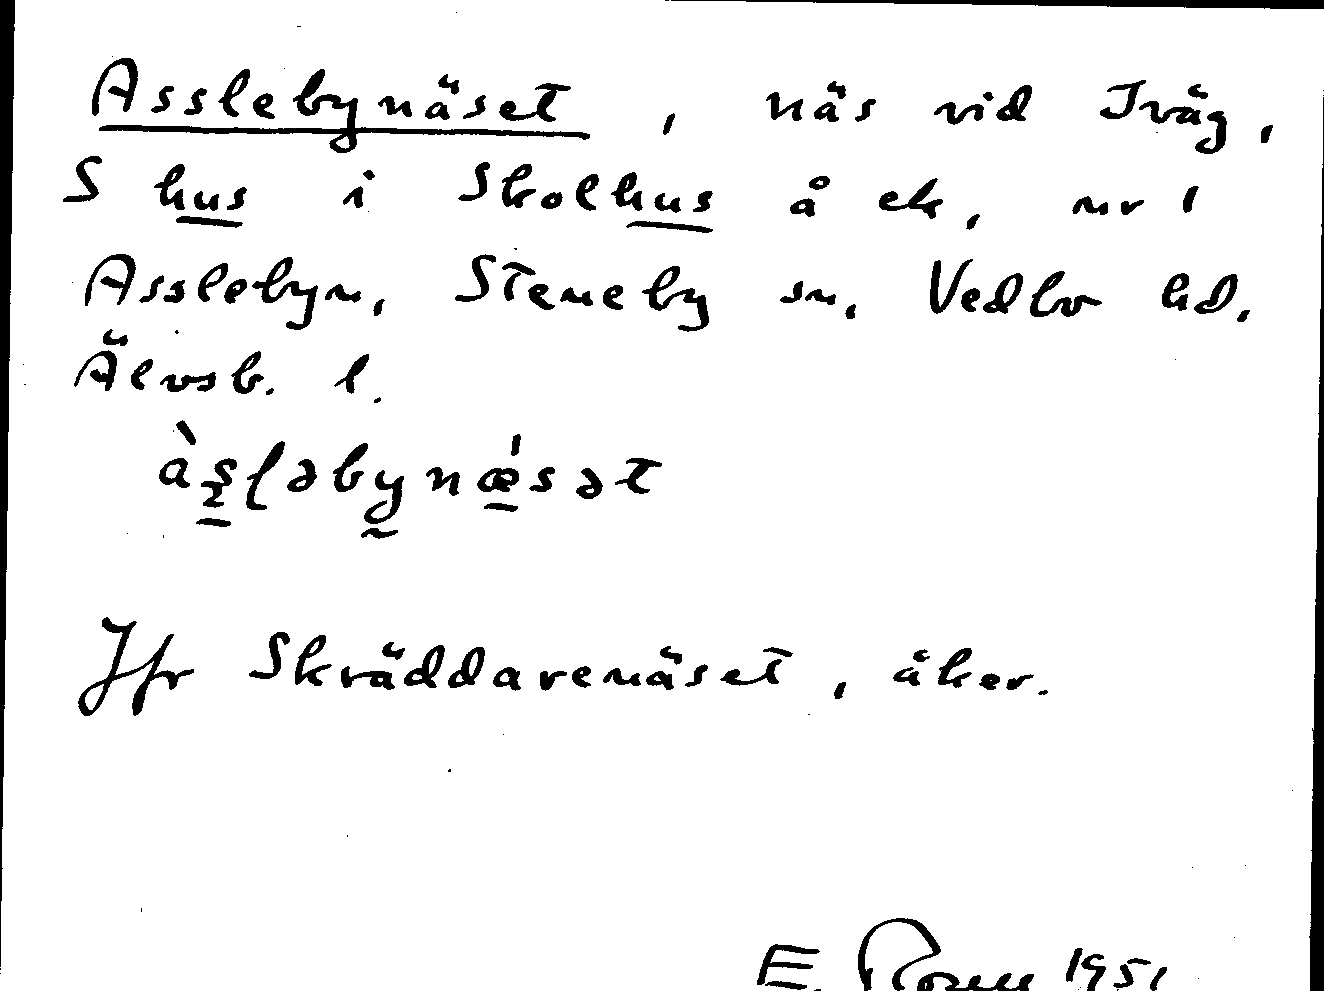 Asslebynäset, näs vid Iväg,
S hus i Skolhus å ek, nr 1
Asslebyn, Steneby sn, Vedbo hd.
Älvsb. l.
àsləbynǽsət
Jfr Skräddarenäset, åker.
E. Rosell 1951